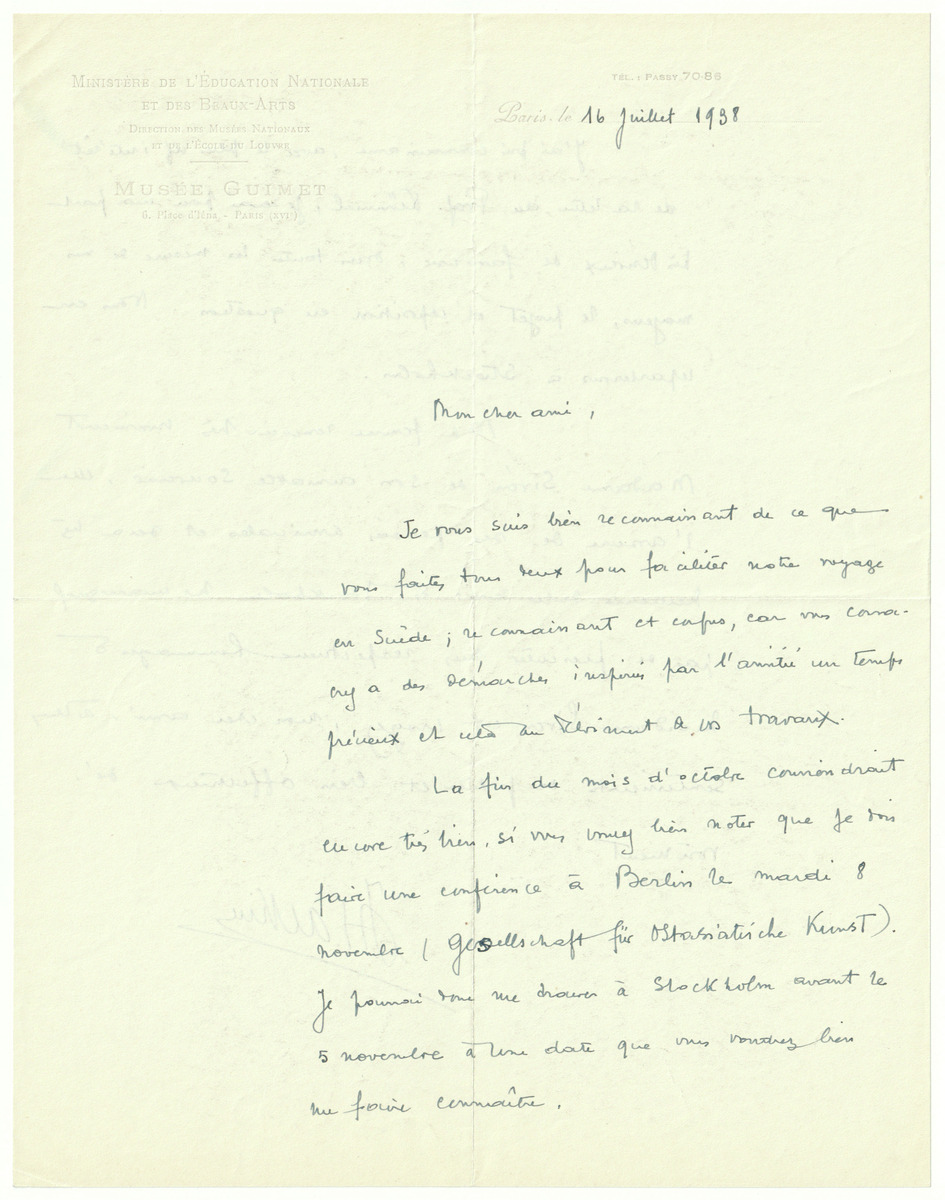 MINISTÈRE DE L'ÉDUCATION NATIONALE
ET DES BEAUX-ARTS
DIRECTION DES MUSÉES NATIONAUX
ET DE L'ÉCOLE DU LOUVRE
MUSÉE GUIMET
6, Place d'Iéna, - PARIS (XVIᵉ)
TÉL. : PASSY 70-86
Paris, le 16 Juillet 1938
Mon cher ami,
Je vous suis bien reconnaissant de ce que
vous faites tous deux pour faciliter notre voyage
en Suède ; reconnaissant et confus, car vous consa-
crez à des démarches inspirées par l'amitié un temps
précieux et cela au détriment de vos travaux.
La fin du mois d'octobre conviendrait
encore très bien, si vous voulez bien noter que je dois
faire une conférence à Berlin le mardi 8
novembre (Gesellschaft für Ostasiatische Kunst).
Je pourrai donc me trouver à Stockholm avant le
5 novembre à une date que vous voudrez bien
me faire connaître.